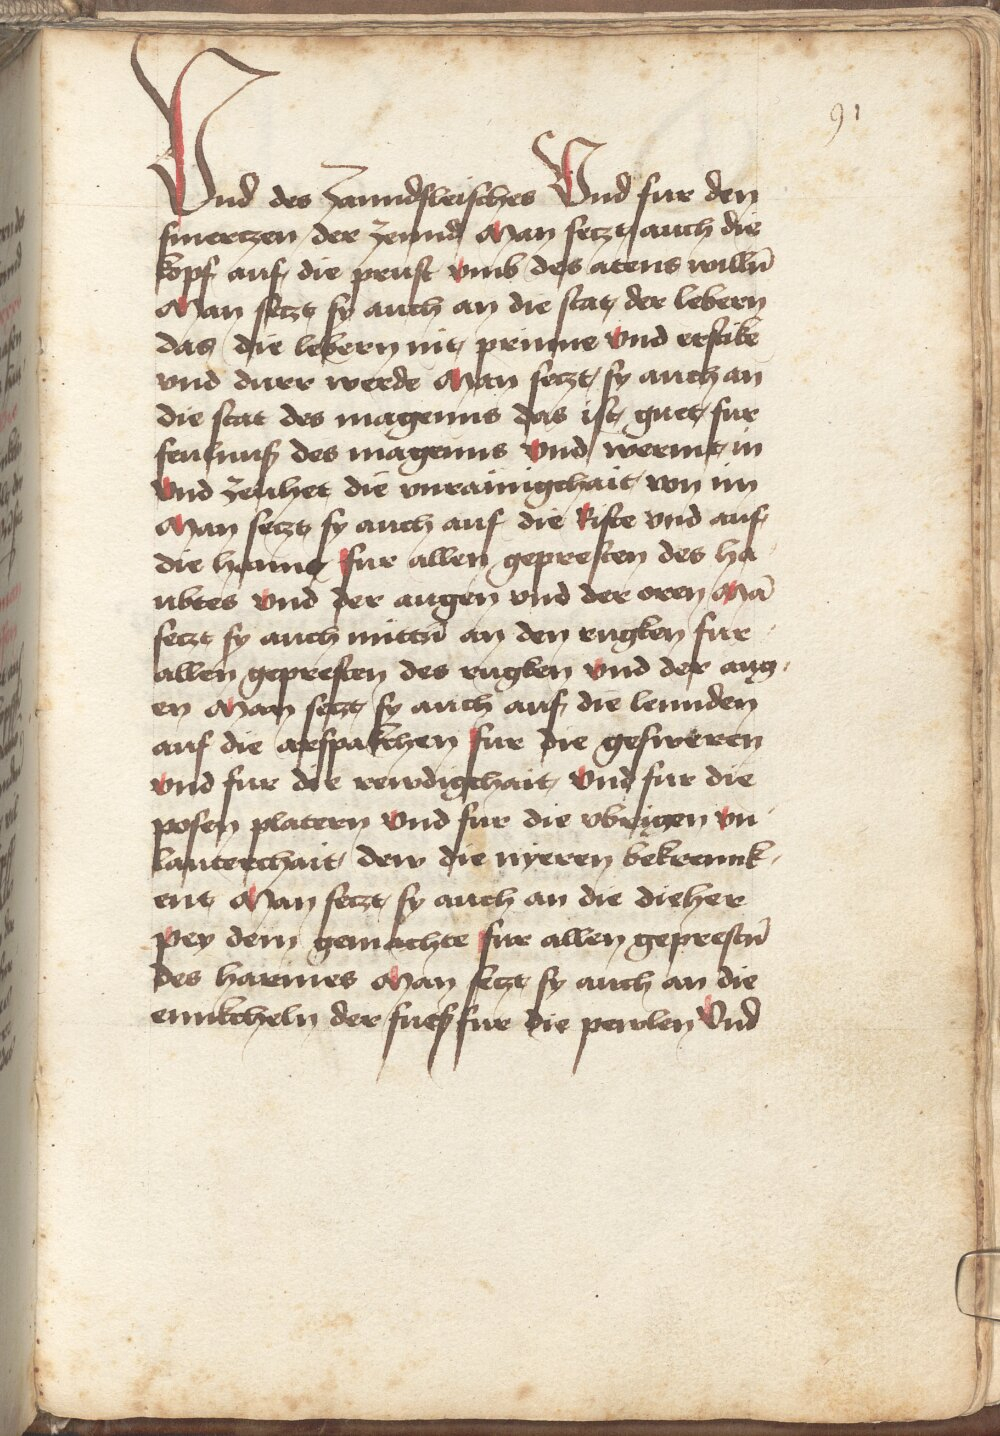 91
Vnd des Zanndfleisches Vnd fur den
smertzen der Zennd Man setzt auch die
kopf auf die prust vmb des atens willn̄
Man setzt sy auch an die stat der lebern
das die lebern nit prinne Vnd erstike
vnd durr werde Man setzt sy auch an
die stat des magenns das ist guet fur
feulnuß des magenns Vnd wermt in
Vnd Zeuhet die vnrainigchait von im
Man setzt sy auch auf die Riste vnd auf
die hennd fur allen gepresten des ha
ubtes vnd der augen vnd der oren Mā
setzt sy auch mittn̄ an den rugken fur
allen gepresten des rugken vnd der aug
en Man setzt sy auch auf die lennden
auf die arspakchen fur die gesweren
vnd fur die rewdigchait Vnd fur die
posen platern Vnd fur die vbrigen vn
lauterchait dew die nyeren bekrennk
ent Man setzt sy auch an die dieher
pey dem gemachte fur allen geprestn̄
des harmes Man setzt sy auch an die
ennkcheln der fueß fur die pewlen Vnd